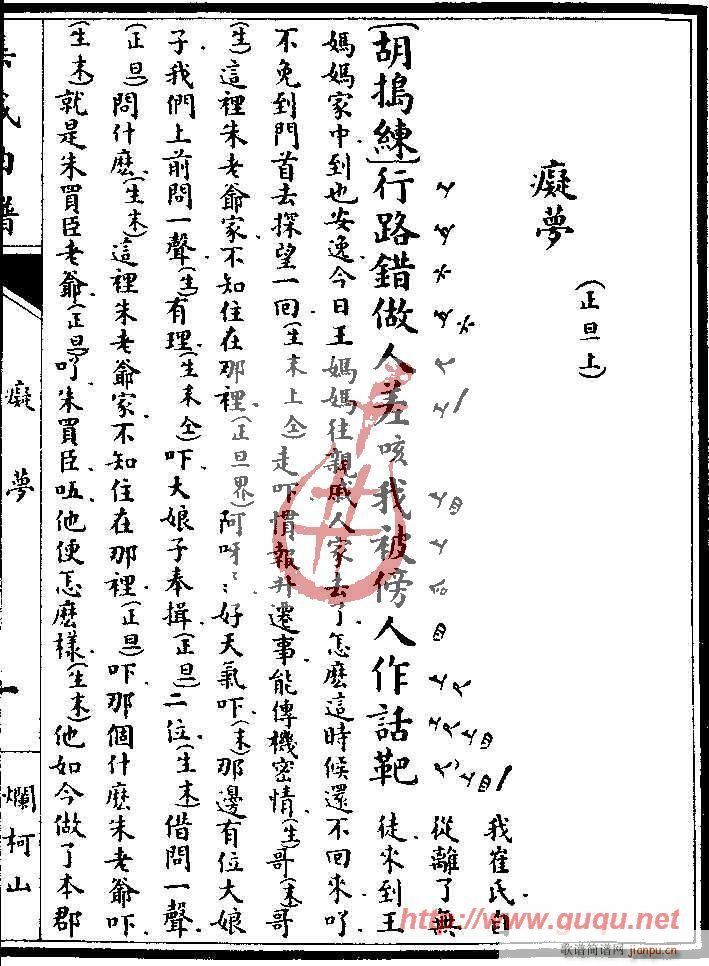 癡夢
(正旦上)
【胡搗練】行路錯做人差咳我被傍人作話靶 我崔氏自
從離了無
徒來到王
媽媽家中到也安逸今日王媽媽往親戚人家去了怎麽這時候還不回來吖
不免到門首去探望一回(生末上仝)走吓慣報升遷事能傳機密情(生)哥(末)哥
(生)這裡朱老爺家不知住在那裡(正旦界)阿呀〻好天氣吓(末)那邊有位大娘
子我們上前問一聲(生)有理(生末仝)吓大娘子奉揖(正旦)二位(生末)借問一聲
(正旦)問什麽(生末)這裡朱老爺家不知住在那裡(正旦)吓那個什麽朱老爺吓
(生末)就是朱買臣老爺(正旦)吖朱買臣㕶他便怎麽樣(生末)他如今做了本郡
集成曲譜
癡夢
一
爛柯山
http://www.guqu.net
歌谱简谱网
jianpu.cn